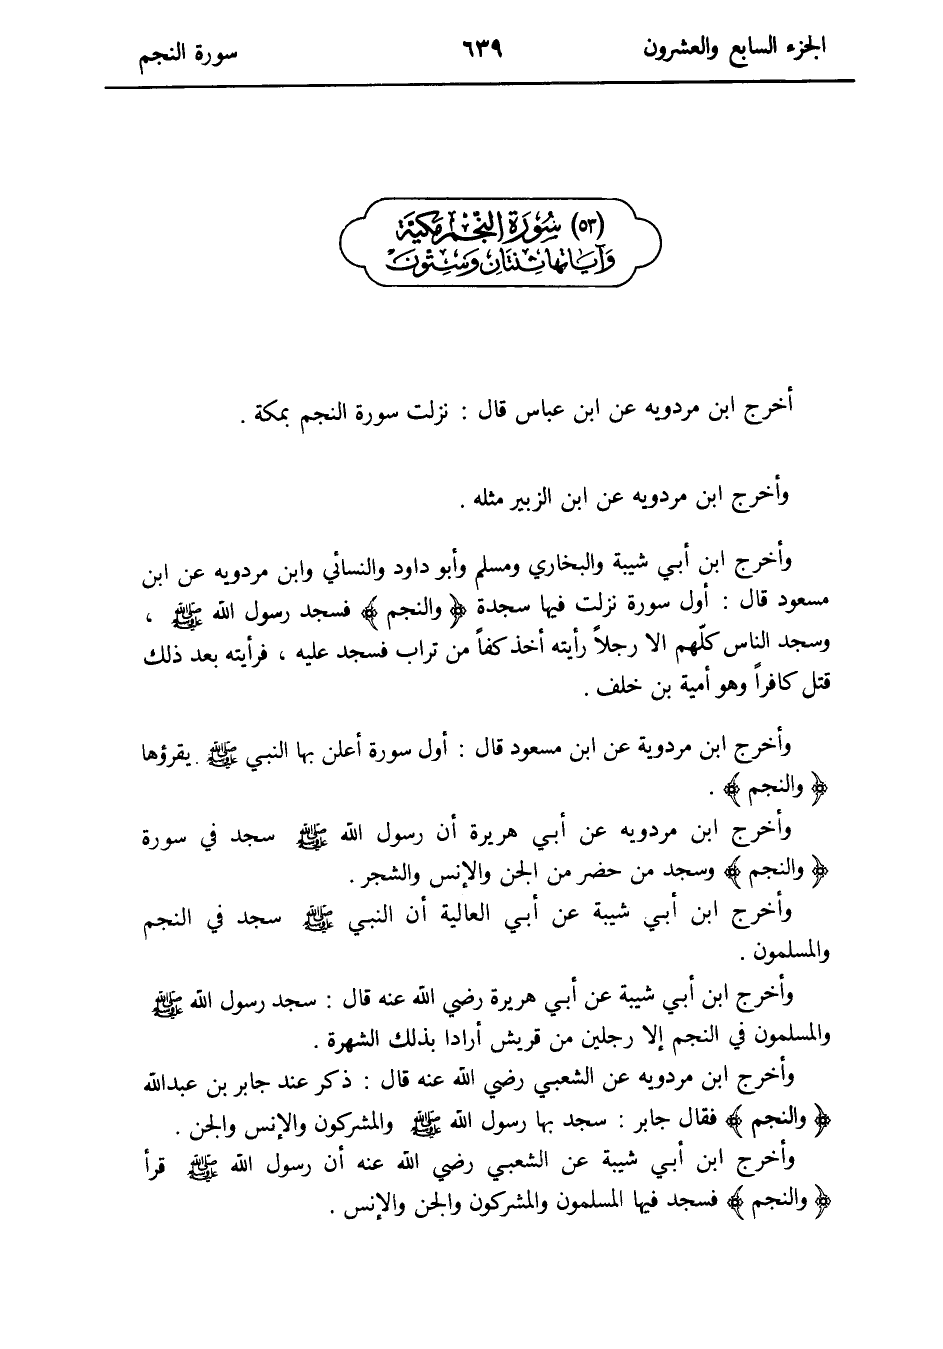 الجزء السابع والعشرون ٦٣٩ سورة النجم
(٥٣) سُورَة النّجْم مَكيّة
وَآيَاتها ثِنتَانِ وَسِتّونَ
أخرج ابن مردويه عن ابن عباس قال : نزلت سورة النجم بمكة .
وأخرج ابن مردويه عن ابن الزبير مثله .
وأخرج ابن أبي شيبة والبخاري ومسلم وأبو داود والنسائي وابن مردويه عن ابن
مسعود قال : أول سورة نزلت فيها سجدة ﴿ والنجم ﴾ فسجد رسول الله ﷺ ،
وسجد الناس كلّهم الا رجلاً رأيته أخذ كفاً من تراب فسجد عليه ، فرأيته بعد ذلك
قتل كافراً وهو أمية بن خلف .
وأخرج ابن مردوية عن ابن مسعود قال : أول سورة أعلن بها النبي ﷺ . يقرؤها
﴿ والنجم ﴾ .
وأخرج ابن مردويه عن أبي هريرة أن رسول الله ﷺ سجد في سورة
﴿ والنجم ﴾ وسجد من حضر من الجن والإنس والشجر .
وأخرج ابن أبي شيبة عن أبي العالية أن النبي ﷺ سجد في النجم
والمسلمون .
وأخرج ابن أبي شيبة عن أبي هريرة رضي الله عنه قال : سجد رسول الله ﷺ
والمسلمون في النجم إلا رجلين من قريش أرادا بذلك الشهرة .
وأخرج ابن مردويه عن الشعبي رضي الله عنه قال : ذكر عند جابر بن عبدالله
﴿ والنجم ﴾ فقال جابر : سجد بها رسول الله ﷺ والمشركون والإنس والجن .
وأخرج ابن أبي شيبة عن الشعبي رضي الله عنه أن رسول الله ﷺ قرأ
﴿ والنجم ﴾ فسجد فيها المسلمون والمشركون والجن والإنس .